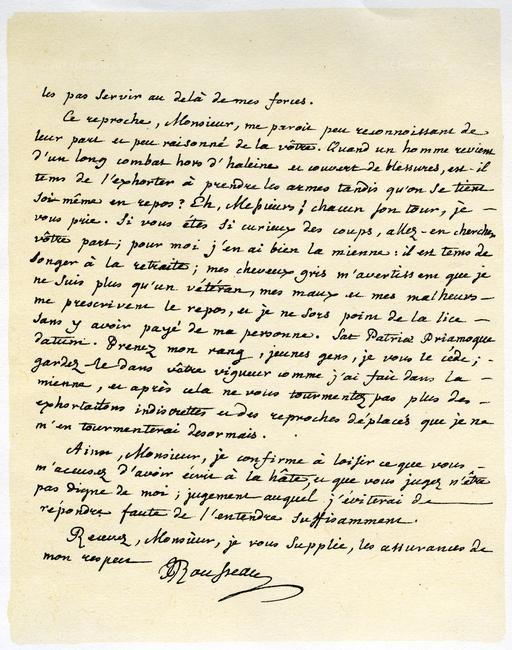 les pas servir au delà de mes forces.
Ce reproche, Monsieur, me paroit peu reconnoissant de
leur part et peu raisonné de la vôtre. Quand un homme revient
d'un long combat hors d'haleine et couvert de blessures, est-il
tems de l'exhorter à prendre les armes tandis qu'on se tient
soi-même en repos? Eh, Messieurs! chacun son tour, je —
vous prie. Si vous êtes si curieux des coups, allez-en chercher
vôtre part; pour moi j'en ai bien la mienne: il est tems de
songer à la retraite; mes cheveux gris m'avertissent que je
ne suis plus qu'un vétéran, mes maux et mes malheurs —
me prescrivent le repos, et je ne sors point de la lice —
sans y avoir payé de ma personne. Sat Patriæ Priamoque
datum. Prenez mon rang, jeunes gens, je vous le cède; -
gardez-le dans vôtre vigueur comme j'ai fait dans la —
mienne, et après cela ne vous tourmentez pas plus des —
exhortations indiscrettes et des reproches déplacés que je ne
m'en tourmenterai desormais.
Ainsi, Monsieur, je confirme à loisir ce que vous —
m'accusez d'avoir écrit à la hâte, et que vous jugez n'être
pas digne de moi; jugement auquel j'éviterai de
répondre faute de l'entendre suffisamment.
Recevez, Monsieur, je vous supplie, les assurances de
mon respect JJRousseau